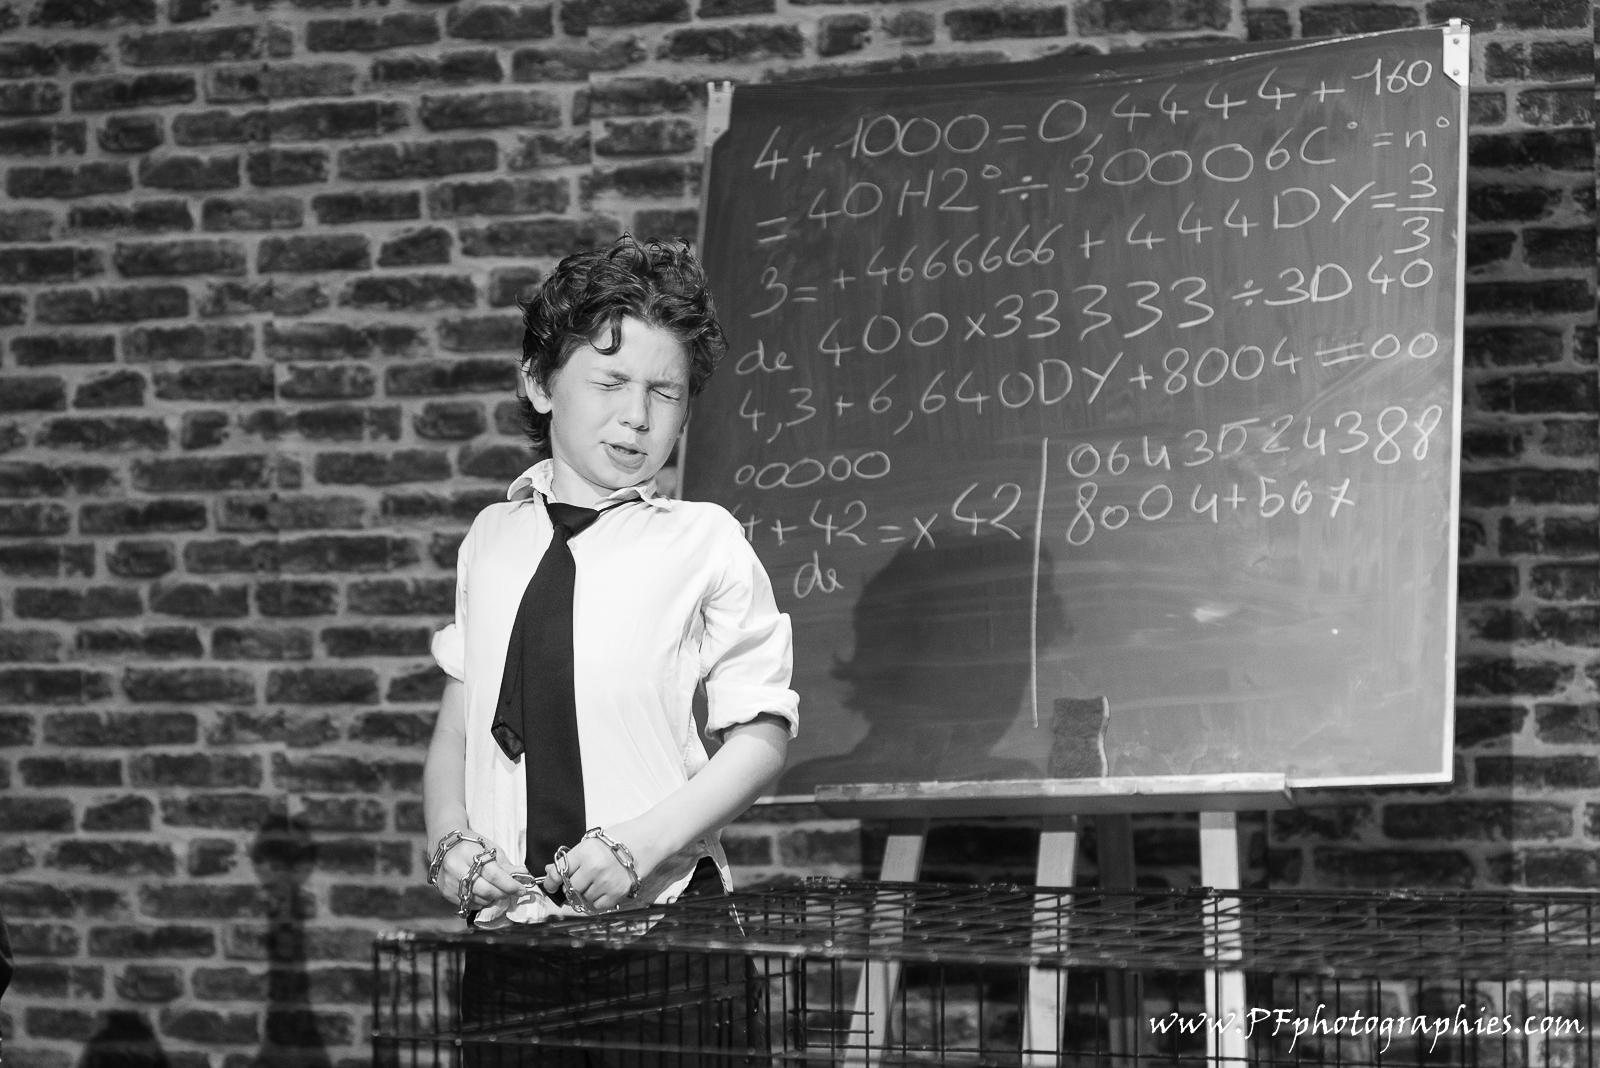 4 + 1000 = 0,4444 + 160
= 40H2° ÷ 30006C° = n°
3 = + 4666666 + 444DY = 3/3
de 400 x 33333 ÷ 3D40
4,3 + 6,640DY + 8004 = 00
00000
4 + 42 = x 42
de
0643524388
8004 + 567
www.PFphotographies.com